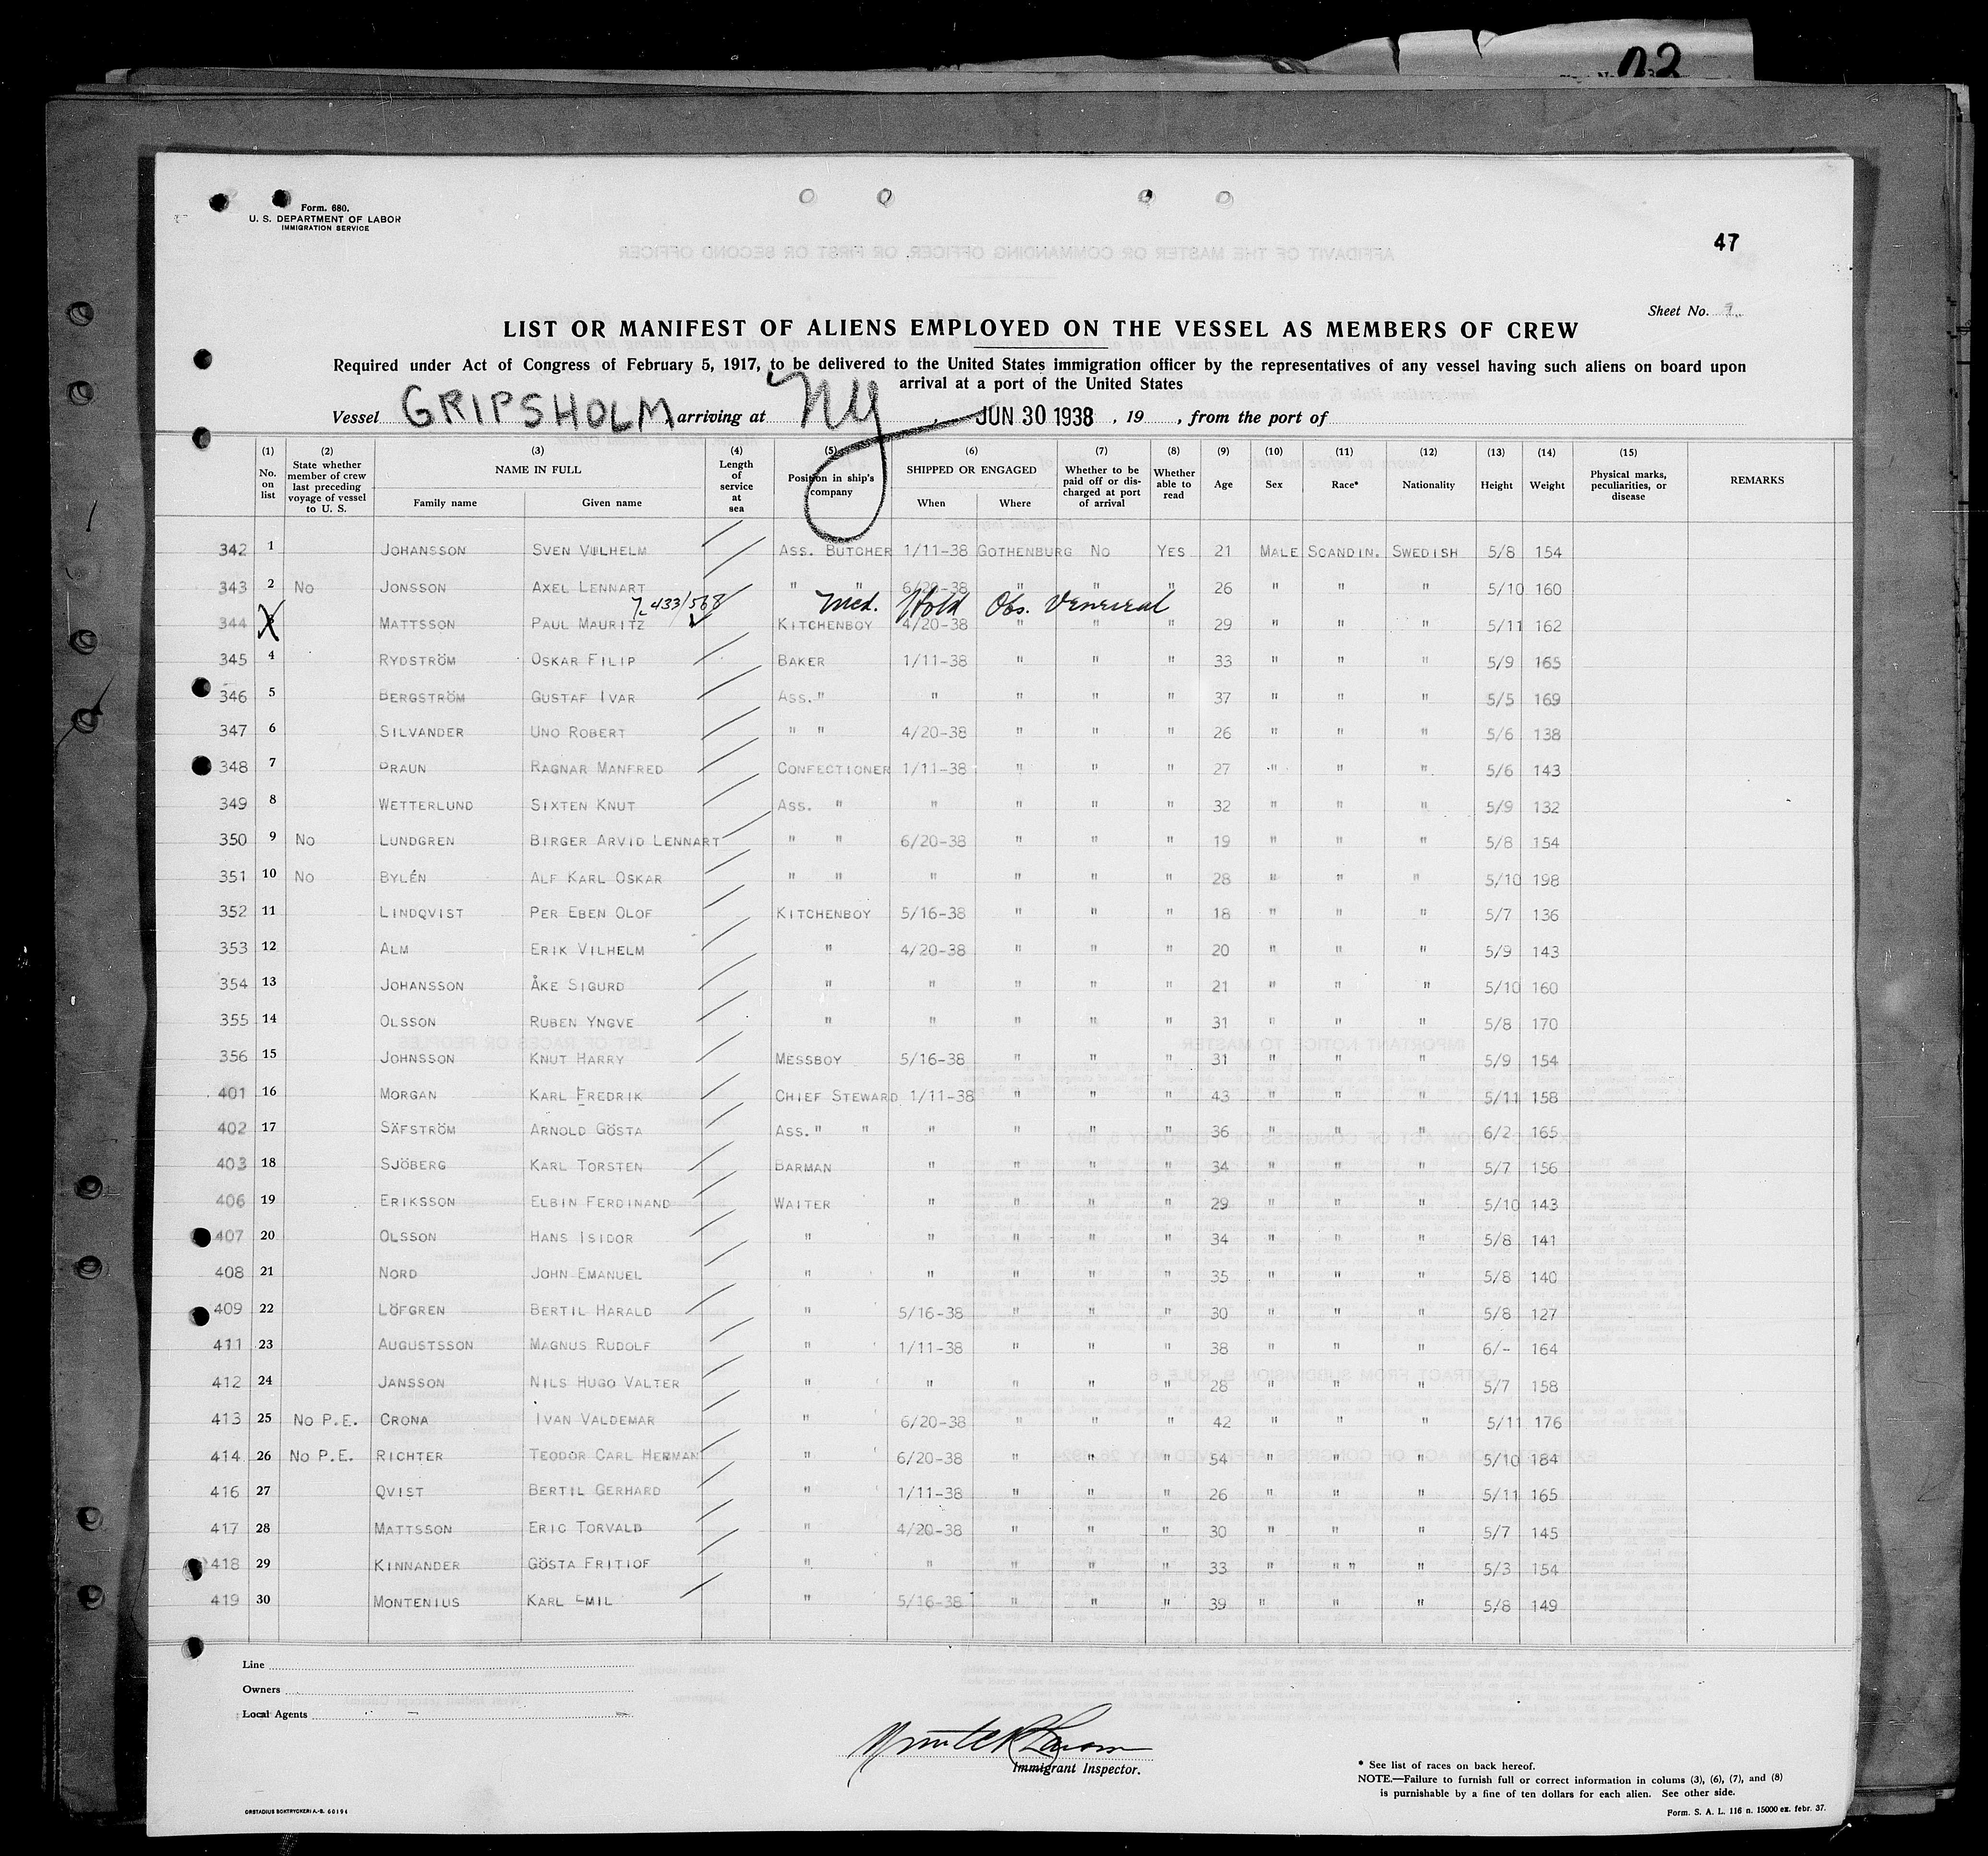 Form. 680.
U. S. DEPARTMENT OF LABOR
IMMIGRATION SERVICE
47
Sheet No. 9
LIST OR MANIFEST OF ALIENS EMPLOYED ON THE VESSEL AS MEMBERS OF CREW
Required under Act of Congress of February 5, 1917, to be delivered to the United States immigration officer by the representatives of any vessel having such aliens on board upon
arrival at a port of the United States
Vessel GRIPSHOLM arriving at NY, JUN 30 1938, 19 , from the port of
(1) No. on list (2) State whether member of crew last preceding voyage of vessel to U. S. (3) NAME IN FULL Family name Given name (4) Length of service at sea (5) Position in ship's company (6) SHIPPED OR ENGAGED When Where (7) Whether to be paid off or discharged at port of arrival (8) Whether able to read (9) Age (10) Sex (11) Race* (12) Nationality (13) Height (14) Weight (15) Physical marks, peculiarities, or disease REMARKS
342 1 JOHANSSON SVEN VILHELM ASS. BUTCHER 1/11-38 GOTHENBURG NO YES 21 MALE SCANDIN. SWEDISH 5/8 154
343 2 NO JONSSON AXEL LENNART " " 6/20-38 " " " 26 " " " 5/10 160
433/568 Med. Hold Obs. Venereal
344 3 MATTSSON PAUL MAURITZ KITCHENBOY 4/20-38 " " " 29 " " " 5/11 162
345 4 RYDSTRÖM OSKAR FILIP BAKER 1/11-38 " " " 33 " " " 5/9 165
346 5 BERGSTRÖM GUSTAF IVAR ASS. " " " " " 37 " " " 5/5 169
347 6 SILVANDER UNO ROBERT " " 4/20-38 " " " 26 " " " 5/6 138
348 7 PRAUN RAGNAR MANFRED CONFECTIONER 1/11-38 " " " 27 " " " 5/6 143
349 8 WETTERLUND SIXTEN KNUT ASS. " " " " " 32 " " " 5/9 132
350 9 NO LUNDGREN BIRGER ARVID LENNART " " 6/20-38 " " " 19 " " " 5/8 154
351 10 NO BYLÉN ALF KARL OSKAR " " " " " " 28 " " " 5/10 198
352 11 LINDQVIST PER EBEN OLOF KITCHENBOY 5/16-38 " " " 18 " " " 5/7 136
353 12 ALM ERIK VILHELM " 4/20-38 " " " 20 " " " 5/9 143
354 13 JOHANSSON ÅKE SIGURD " " " " " 21 " " " 5/10 160
355 14 OLSSON RUBEN YNGVE " " " " " 31 " " " 5/8 170
356 15 JOHNSSON KNUT HARRY MESSBOY 5/16-38 " " " 31 " " " 5/9 154
401 16 MORGAN KARL FREDRIK CHIEF STEWARD 1/11-38 " " " 43 " " " 5/11 158
402 17 SÄFSTRÖM ARNOLD GÖSTA ASS. " " " " " " 36 " " " 6/2 165
403 18 SJÖBERG KARL TORSTEN BARMAN " " " " 34 " " " 5/7 156
406 19 ERIKSSON ELBIN FERDINAND WAITER " " " " 29 " " " 5/10 143
407 20 OLSSON HANS ISIDOR " " " " " 34 " " " 5/8 141
408 21 NORD JOHN EMANUEL " " " " " 35 " " " 5/8 140
409 22 LÖFGREN BERTIL HARALD " 5/16-38 " " " 30 " " " 5/8 127
411 23 AUGUSTSSON MAGNUS RUDOLF " 1/11-38 " " " 38 " " " 6/- 164
412 24 JANSSON NILS HUGO VALTER " " " " " 28 " " " 5/7 158
413 25 NO P.E. CRONA IVAN VALDEMAR " 6/20-38 " " " 42 " " " 5/11 176
414 26 NO P.E. RICHTER TEODOR CARL HERMAN " 6/20-38 " " " 54 " " " 5/10 184
416 27 QVIST BERTIL GERHARD " 1/11-38 " " " 26 " " " 5/11 165
417 28 MATTSSON ERIC TORVALD " 4/20-38 " " " 30 " " " 5/7 145
418 29 KINNANDER GÖSTA FRITIOF " " " " " 33 " " " " 5/3 154
419 30 MONTENIUS KARL EMIL " 5/16-38 " " " 39 " " " 5/8 149
Line
Owners
Local Agents
Immigrant Inspector.
* See list of races on back hereof.
NOTE.—Failure to furnish full or correct information in colums (3), (6), (7), and (8)
is punishable by a fine of ten dollars for each alien. See other side.
ORSTADIUS BOKTRYCKERI A.-B. 60194
Form. S. A. L. 116 n. 15000 ex. febr. 37.